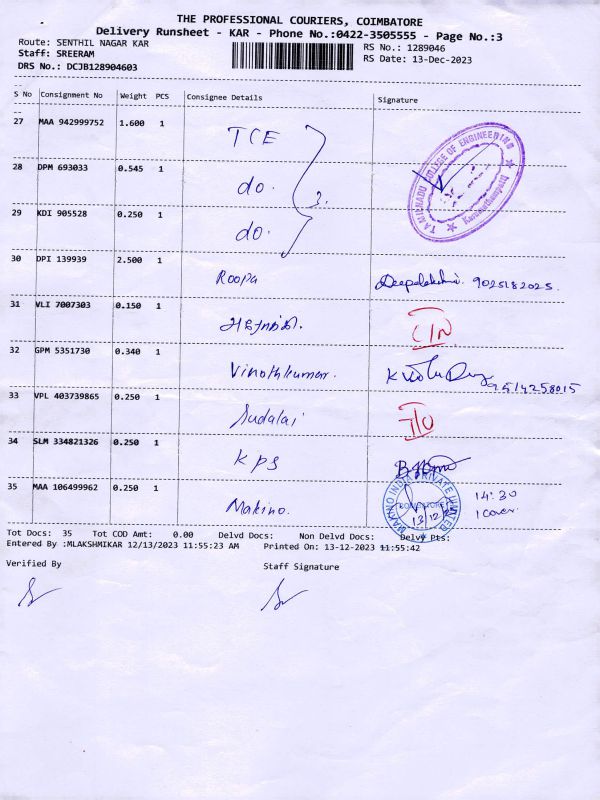 THE PROFESSIONAL COURIERS, COIMBATORE
Delivery Runsheet - KAR - Phone No.:0422-3505555 - Page No.:3
Route: SENTHIL NAGAR KAR
RS No.: 1289046
Staff: SREERAM
RS Date: 13-Dec-2023
DRS No.: DCJB128904603
S No Consignment No Weight PCS Consignee Details Signature
27 MAA 942999752 1.600 1 TCE
TAMILNADU COLLEGE OF ENGINEERING
Karumathampatti
28 DPM 693033 0.545 1 do. 3.
29 KDI 905528 0.250 1 do.
30 DPI 139939 2.500 1 Roopa Deepalakshmi. 9025182025.
31 VLI 7007303 0.150 1
32 GPM 5351730 0.340 1 Vinothkumar. 9514258015
33 VPL 403739865 0.250 1 Sudalai
34 SLM 334821326 0.250 1 KPS
35 MAA 106499962 0.250 1 Makino. 14:30
1 cover
MAKINO INDIA PRIVATE LIMITED
COIMBATORE
13/12
Tot Docs: 35 Tot COD Amt: 0.00 Delvd Docs: Non Delvd Docs: Delvd Pts:
Entered By :MLAKSHMIKAR 12/13/2023 11:55:23 AM Printed On: 13-12-2023 11:55:42
Verified By Staff Signature